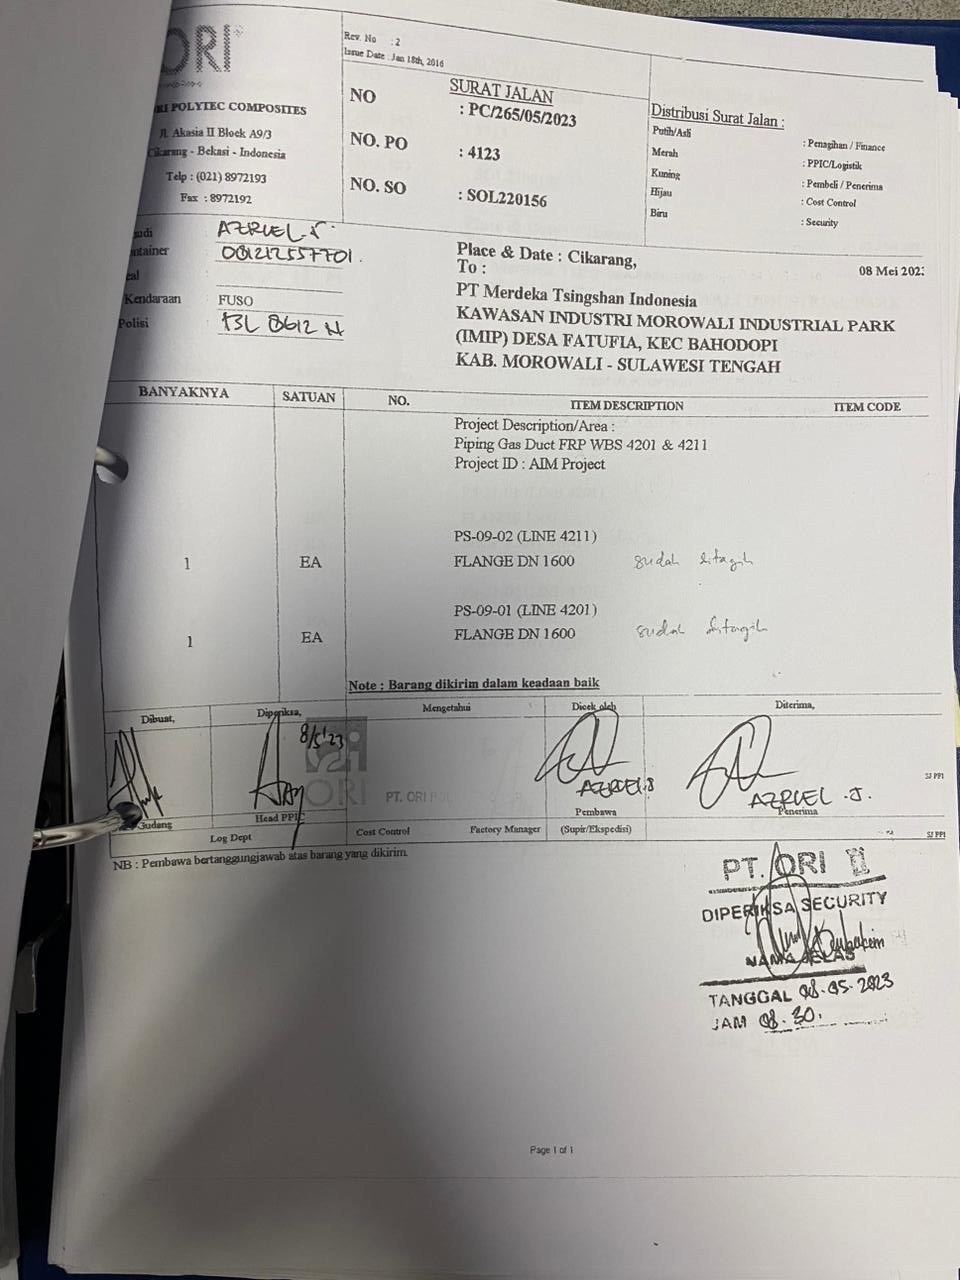 ORI
Rev. No : 2
Issue Date : Jan 18th, 2016
RI POLYTEC COMPOSITES
Jl. Akasia II Block A9/3
Cikarang - Bekasi - Indonesia
Telp : (021) 8972193
Fax : 8972192
SURAT JALAN
NO : PC/265/05/2023
NO. PO : 4123
NO. SO : SOL220156
Distribusi Surat Jalan :
Putih/Asli : Penagihan / Finance
Merah : PPIC/Logistik
Kuning : Pembeli / Penerima
Hijau : Cost Control
Biru : Security
udi AZRUEL.S
ntainer 081212557701.
eal
Kendaraan FUSO
Polisi BL 8612 N
Place & Date : Cikarang, 08 Mei 202
To :
PT Merdeka Tsingshan Indonesia
KAWASAN INDUSTRI MOROWALI INDUSTRIAL PARK
(IMIP) DESA FATUFIA, KEC BAHODOPI
KAB. MOROWALI - SULAWESI TENGAH
BANYAKNYA SATUAN NO. ITEM DESCRIPTION ITEM CODE
Project Description/Area :
Piping Gas Duct FRP WBS 4201 & 4211
Project ID : AIM Project
PS-09-02 (LINE 4211)
1 EA FLANGE DN 1600 sudah ditagih
PS-09-01 (LINE 4201)
1 EA FLANGE DN 1600 sudah ditagih
Note : Barang dikirim dalam keadaan baik
Dibuat, Diperiksa, Mengetahui Dicek oleh Diterima,
8/5'23
ORI PT. ORI
AZRUEL.S AZRUEL .S.
SJ PPI
Gudang Head PPIC Pembawa Penerima
Log Dept Cost Control Factory Manager (Supir/Ekspedisi) SJ PPI
NB : Pembawa bertanggungjawab atas barang yang dikirim.
PT. ORI
DIPERIKSA SECURITY
NAMA JELAS
TANGGAL 08.05.2023
JAM 08.30.
Page 1 of 1